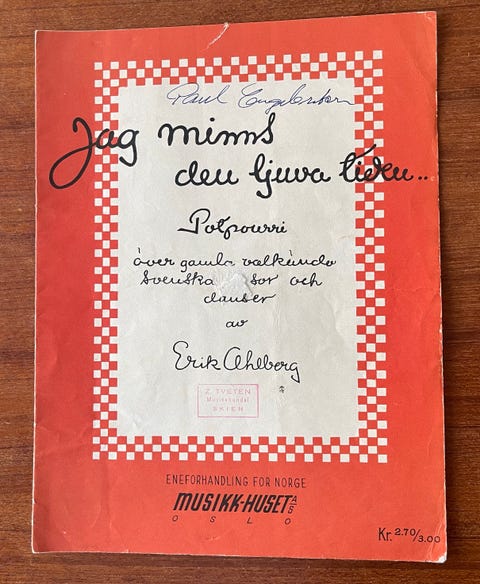 Paul
Jag minns
den ljuva tiden..
Potpourri
över gamla välkända
svenska sor och
danser
av
Erik Ahlberg
Z. TVETEN
Musikkhandel
SKIEN
ENEFORHANDLING FOR NORGE
MUSIKK-HUSET A/S
OSLO
Kr. 2.70/3.00